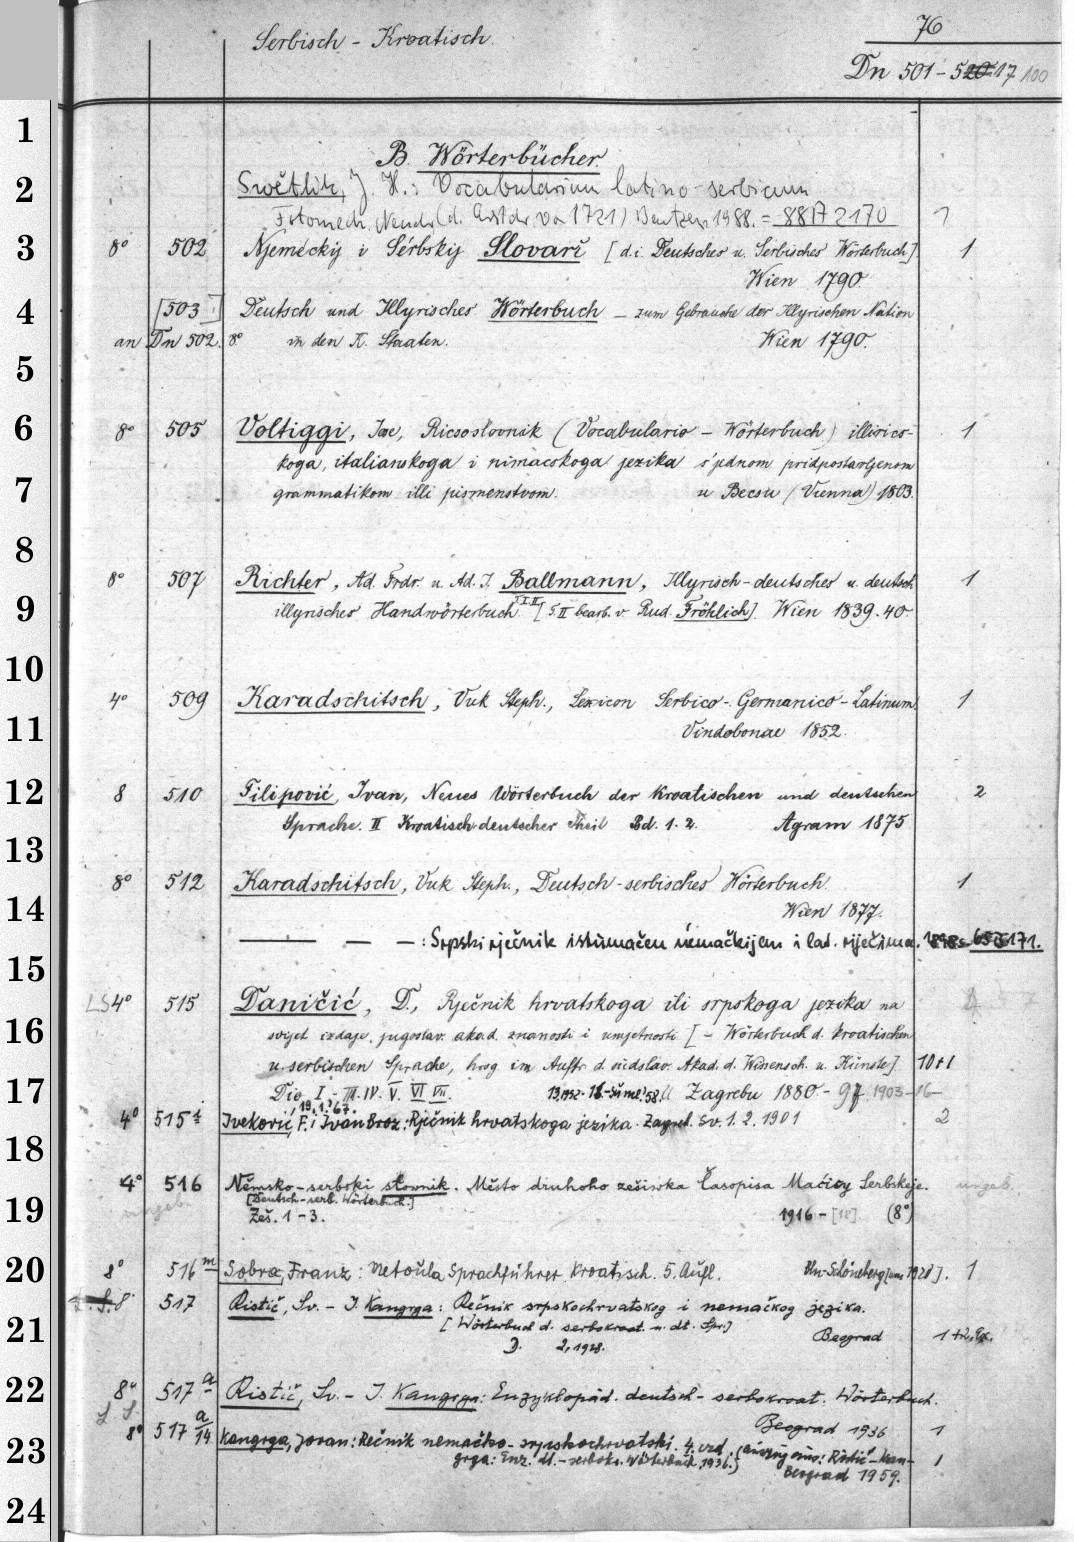 76
Serbisch - Kroatisch.
Dn 501 - 520 17 100
1
B. Wörterbücher.
2 Swětlik, J. H.: Vocabularium latino-serbicum
Fotomech. Neudr. (d. Erstdr. von 1721) Bautzen 1988. = 88 A 2170 1
3 8° 502 Njemeckij i Serbskij Slovarź [d. i. Deutsches u. Serbisches Wörterbuch] 1
Wien 1790.
4 [503 I] Deutsch und Illyrisches Wörterbuch - zum Gebrauche der Illyrischen Nation
an Dn 502. 8° in den K. Staaten. Wien 1790.
5
6 8° 505 Voltiggi, Jos., Ricsoslovnik (Vocabulario - Wörterbuch) illirics- 1
koga, italianskoga i nimacskoga jezika s'jednom pridpostavljenom
7 grammatikom illi pismenstvom. u Becsu (Vienna) 1803.
8
8° 507 Richter, Ad. Frdr. u. Ad. J. Ballmann, Illyrisch-deutsches u. deutsch 1
9 illyrisches Handwörterbuch T. I. II [T. II bearb. v. Rud. Fröhlich] Wien 1839.40.
10
4° 509 Karadschitsch, Vuk Steph., Lexicon Serbico-Germanico-Latinum 1
11 Vindobonae 1852.
12 8 510 Filipović, Ivan, Neues Wörterbuch der kroatischen und deutschen 2
Sprache. II Kroatisch-deutscher Theil Bd. 1. 2. Agram 1875
13
8° 512 Karadschitsch, Vuk Steph., Deutsch-serbisches Wörterbuch 1
14 Wien 1877.
— — —: Srpski rječnik istumačen němačkijem i lat. riječima. 1898=
15
LS 4° 515 Daničić, D., Rječnik hrvatskoga ili srpskoga jezika na
16 svijet izdaje jugoslav. akad. znanosti i umjetnosti [- Wörterbuch d. kroatischen
u. serbischen Sprache, hrsg im Auftr. d. südslav. Akad. d. Wissensch. u. Künste] 10+1
17 Dio I - III. IV. V. VI VII. Zagrebu 1880 - 97 1903-16-
4° 515 i Iveković, F. i Ivan Broz: Rječnik hrvatskoga jezika. Zagreb. Sv. 1. 2. 1901 2
18
4° 516 Němsko-serbski słownik. Město druhoho zešiwka Časopisa Maćicy Serbskeje. ungeb.
ungeb. [Deutsch-serb. Wörterbuch.]
19 Zeš. 1-3. 1916 - [18] (8°)
20 8° 516 m Sobra, Franz: Metoula Sprachführer Kroatisch. 5. Aufl. Bln-Schöneberg [um 1928]. 1
8° 517 Ristić, Sv. - J. Kangrga: Rečnik srpskochrvatskog i nemačkog jezika.
21 [Wörterbuch d. serbokroat. u. dt. Spr.] Beograd
2, 1928.
22 8° 517 a Ristić, Sv. - J. Kangrga: Enzyklopäd. deutsch-serbokroat. Wörterbuch.
Beograd 1936 1
8° 517 a/14 Kangrga, Jovan: Rečnik nemačko-srpskohrvatski. 4. izd. (Auszug aus: Ristić-Kan-
23 grga: Enz. dt.-serbokr. Wörterbuch, 1936.) 1
Beograd 1959.
24